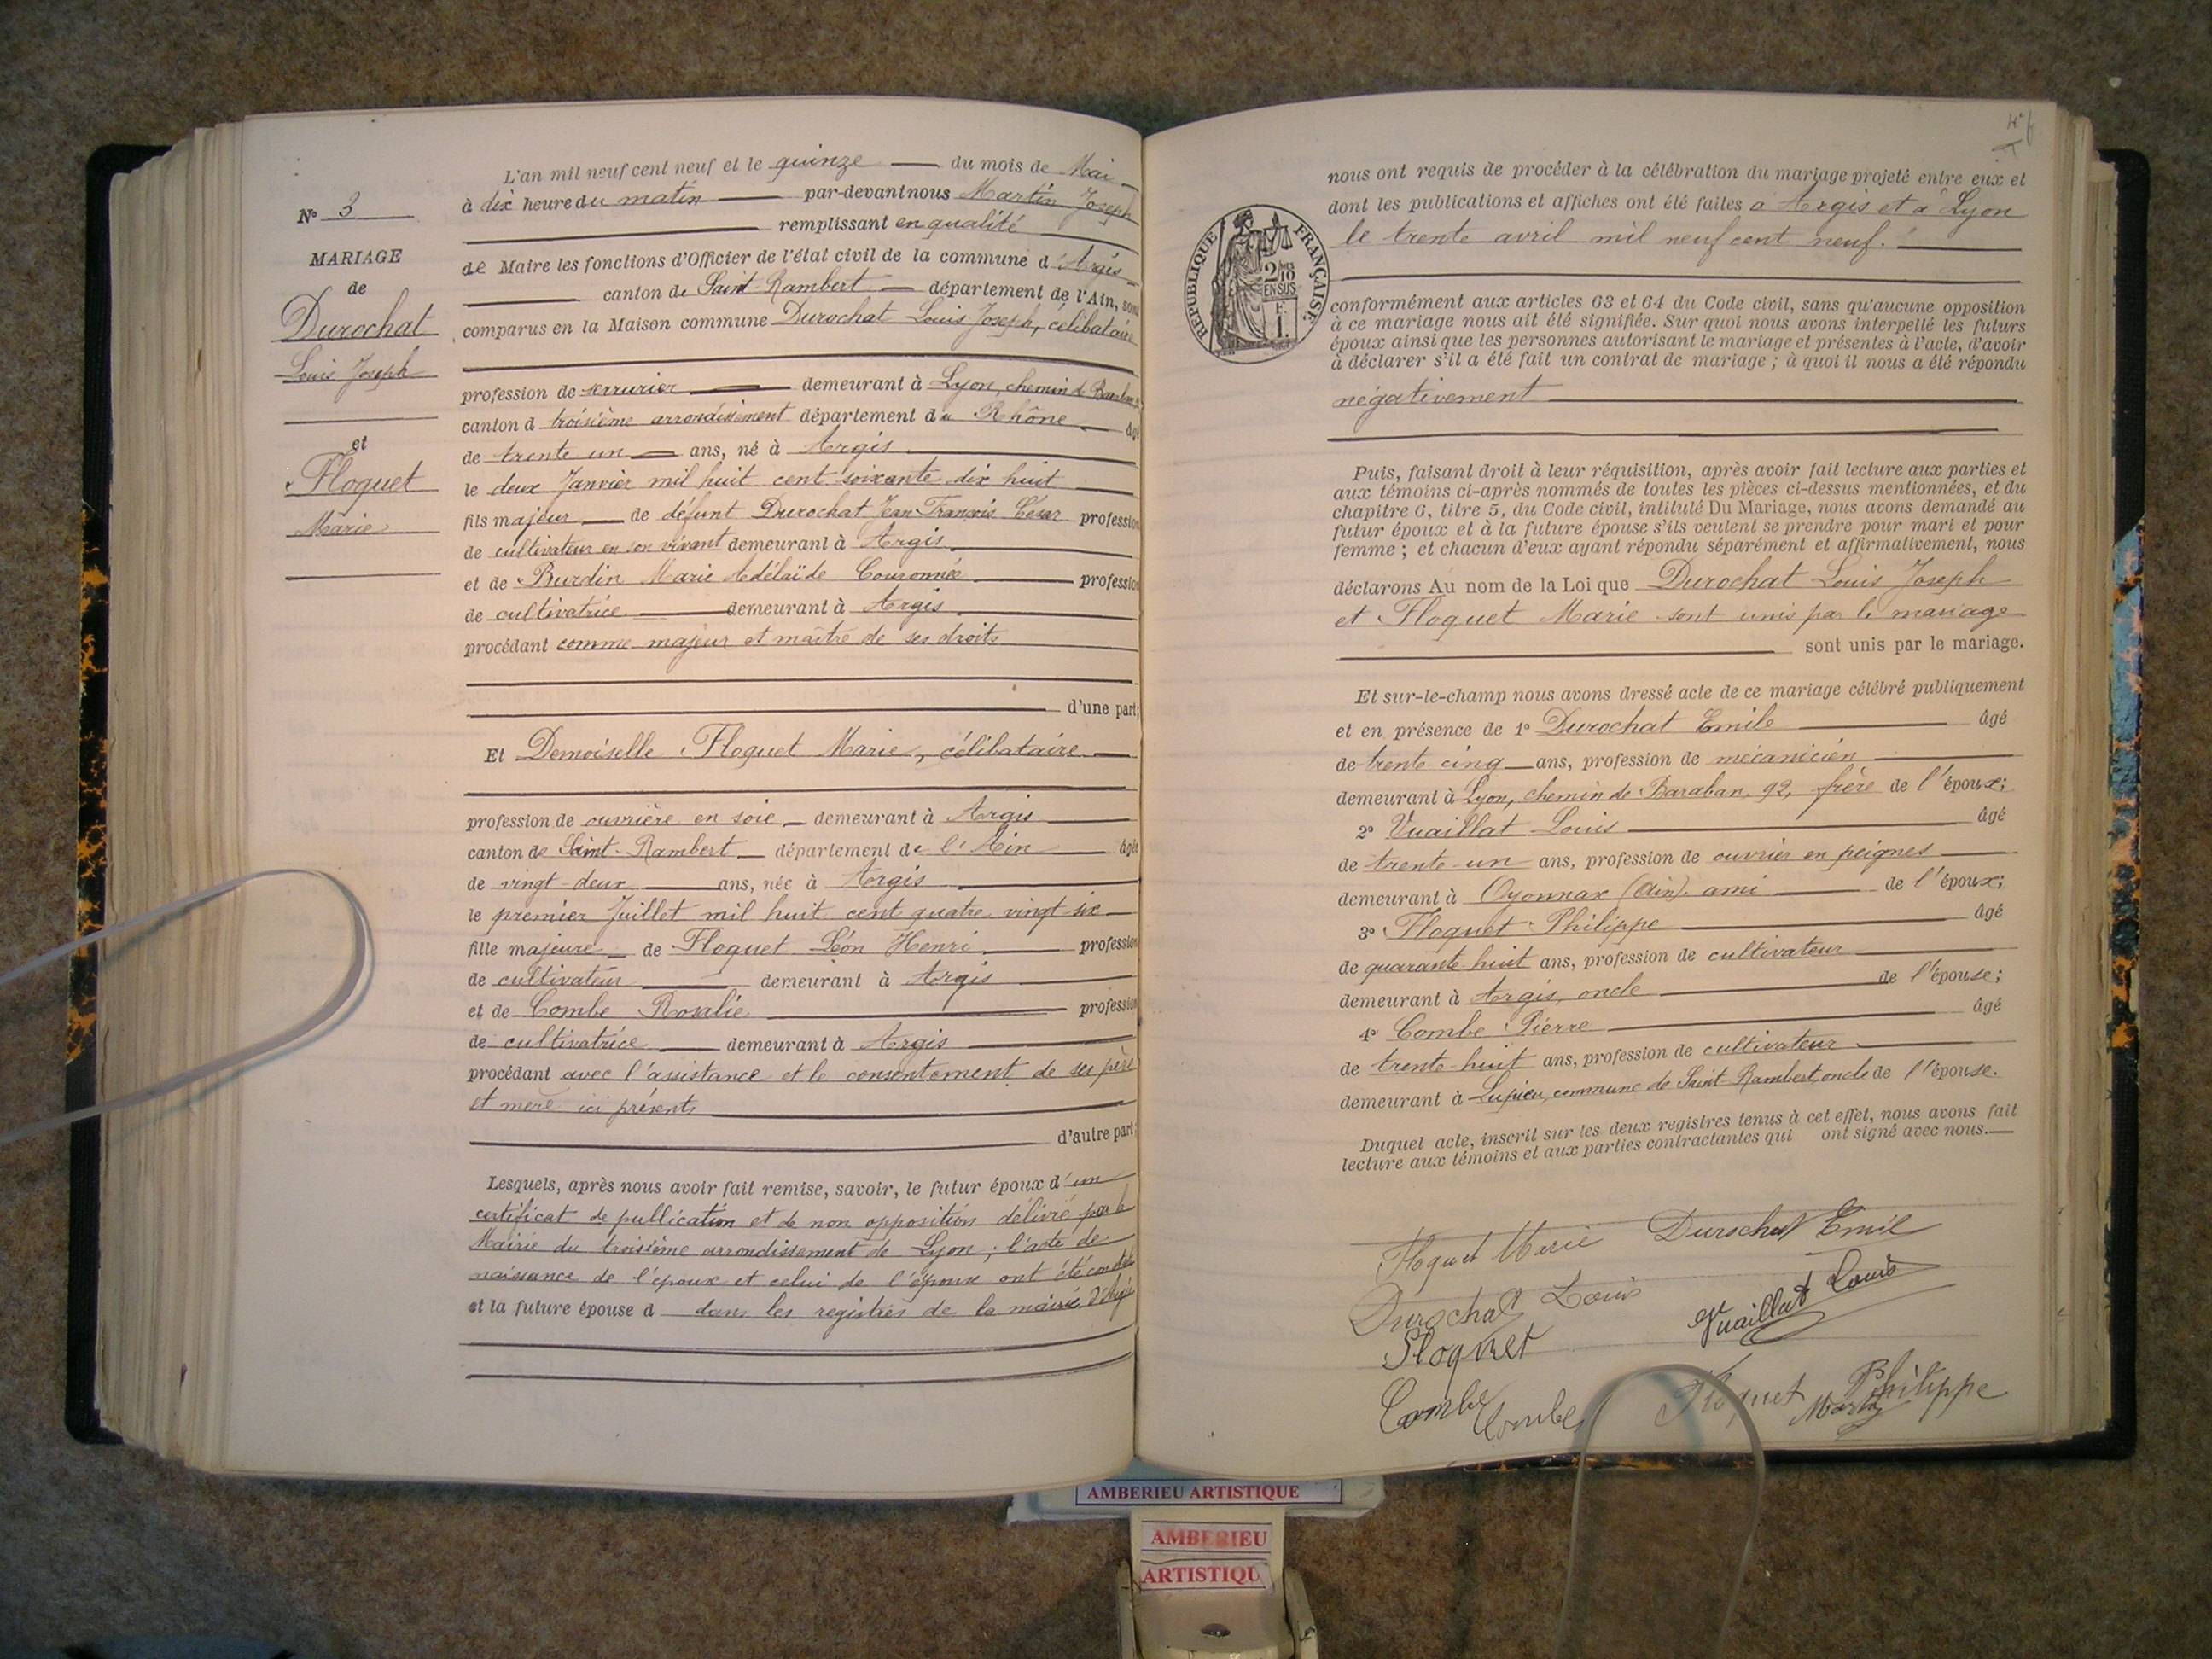 L'an mil neuf cent neuf et le quinze du mois de Mai
à dix heure du matin par-devant nous Martin Joseph
remplissant en qualité
de Maire les fonctions d'Officier de l'état civil de la commune d'Argis
canton de Saint-Rambert département de l'Ain, sont
comparus en la Maison commune Durochat Louis Joseph, célibataire
profession de serrurier demeurant à Lyon, chemin de
canton d troisième arrondissement département du Rhône âgé
de trente un ans, né à Argis
le deux Janvier mil huit cent soixante dix huit
fils majeur de défunt Durochat Jean François César profession
de cultivateur en son vivant demeurant à Argis
et de Burdin Marie Adélaïde Couronnée profession
de cultivatrice demeurant à Argis
procédant comme majeur et maître de ses droits
d'une part;
Et Demoiselle Floquet Marie, célibataire
profession de ouvrière en soie demeurant à Argis
canton de Saint-Rambert département de l'Ain âgée
de vingt-deux ans, née à Argis
le premier Juillet mil huit cent quatre vingt six
fille majeure de Floquet Léon Henri profession
de cultivateur demeurant à Argis
et de Combe Rosalie profession
de cultivatrice demeurant à Argis
procédant avec l'assistance et le consentement de ses père
et mère ici présents
d'autre part;
Lesquels, après nous avoir fait remise, savoir, le futur époux d'un
certificat de publication et de non opposition délivré par la
Mairie du troisième arrondissement de Lyon; l'acte de
naissance de l'époux et celui de l'épouse ont été
et la future épouse d dans les registres de la mairie d'Argis
No 3
MARIAGE
de
Durochat
Louis Joseph
et
Floquet
Marie
nous ont requis de procéder à la célébration du mariage projeté entre eux et
dont les publications et affiches ont été faites à Argis et à Lyon
le trente avril mil neuf cent neuf.
RÉPUBLIQUE FRANÇAISE
2/10 EN SUS
F.
1.
conformément aux articles 63 et 64 du Code civil, sans qu'aucune opposition
à ce mariage nous ait été signifiée. Sur quoi nous avons interpellé les futurs
époux ainsi que les personnes autorisant le mariage et présentes à l'acte, d'avoir
à déclarer s'il a été fait un contrat de mariage; à quoi il nous a été répondu
négativement
Puis, faisant droit à leur réquisition, après avoir fait lecture aux parties et
aux témoins ci-après nommés de toutes les pièces ci-dessus mentionnées, et du
chapitre 6, titre 5, du Code civil, intitulé Du Mariage, nous avons demandé au
futur époux et à la future épouse s'ils veulent se prendre pour mari et pour
femme; et chacun d'eux ayant répondu séparément et affirmativement, nous
déclarons Au nom de la Loi que Durochat Louis Joseph
et Floquet Marie sont unis par le mariage
sont unis par le mariage.
Et sur-le-champ nous avons dressé acte de ce mariage célébré publiquement
et en présence de 1o Durochat Emile âgé
de trente cinq ans, profession de mécanicien
demeurant à Lyon, chemin de Baraban, 92, frère de l'époux;
2o Vuaillat Louis âgé
de trente-un ans, profession de ouvrier en peignes
demeurant à Oyonnax (Ain), ami de l'époux;
3o Floquet Philippe âgé
de quarante-huit ans, profession de cultivateur
demeurant à Argis, oncle de l'épouse;
4o Combe Pierre âgé
de trente-huit ans, profession de cultivateur
demeurant à Lupieu, commune de Saint-Rambert, oncle de l'épouse.
Duquel acte, inscrit sur les deux registres tenus à cet effet, nous avons fait
lecture aux témoins et aux parties contractantes qui ont signé avec nous.
Floquet Marie Durochat Emil
Durochat Louis Vuaillat Louis
Floquet
Combe Combe Floquet Philippe
Martin
AMBERIEU ARTISTIQUE
AMBERIEU
ARTISTIQU